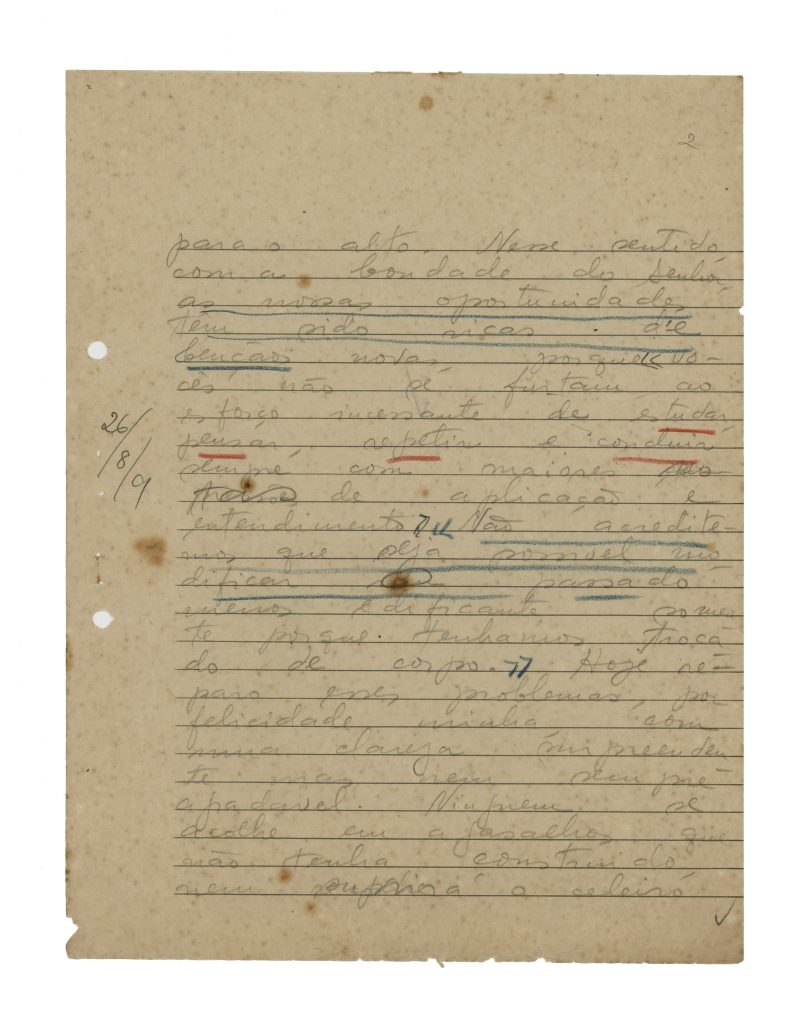 2
para o alto. Nesse sentido
com a bondade do Senhor
as nossas oportunidades
têm sido ricas de
bençãos novas, porque « vo-
cês não se furtam ao
esforço incessante de estudar,
pensar, repetir e concluir
sempre com maiores
de aplicação e
entendimento. » « Não acredite-
mos que seja possivel mo
dificar o passado
menos edificante somen
te porque tenhamos troca
do de corpo. » Hoje re-
paro esses problemas, por
felicidade minha com
uma clareza surpreenden
te mas nem sempre
agradavel. Ninguem se
acolhe em agasalhos que
não tenha construido
nem o celeiro
26/
/8/
/9